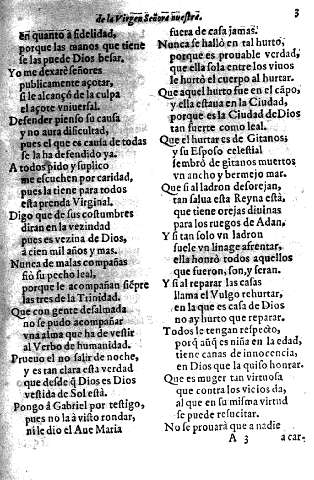 de la Virgen Señora nuestra. 3
en quanto a fidelidad,
porque las manos que tiene
se las puede Dios besar.
Yo me dexarè señores
publicamente açotar,
si le alcançò de la culpa
el açote vniuersal.
Defender pienso su causa
y no aura dificultad,
pues el que es causa de todas
se la ha defendido ya.
A todos pido y suplico
me escuchen por caridad,
pues la tiene para todos
esta prenda Virginal.
Digo que de sus costumbres
diràn en la vezindad
pues es vezina de Dios,
à cien mil años y mas.
Nunca de malas compañas
fiò su pecho leal,
porque le acompañan siẽpre
las tres de la Trinidad.
Que con gente desalmada
no se pudo acompañar
vna alma que ha de vestir
al Verbo de humanidad.
Prueuo el no salir de noche,
y es tan clara esta verdad
que desde q̃ Dios es Dios
vestida de Sol està.
Pongo à Gabriel por testigo,
pues no la à visto rondar,
ni le dio el Aue Maria
fuera de casa jamas.
Nunca se hallò en tal hurto,
porque es prouable verdad,
que ella sola entre los viuos
le hurtò el cuerpo al hurtar.
Que aquel hurto fue en el cãpo,
y ella estaua en la Ciudad,
porque es la Ciudad de Dios
tan fuerte como leal.
Que el hurtar es de Gitanos;
y su Esposo celestial
sembrò de gitanos muertos
vn ancho y bermejo mar.
Que si al ladron desorejan,
tan salua esta Reyna està,
que tiene orejas diuinas
para los ruegos de Adan.
Y si tan solo vn ladron
suele vn linage afrentar,
ella honrò todos aquellos
que fueron, son, y seran.
Y si al reparar las casas
llama el Vulgo rehurtar,
en la que es casa de Dios
no ay hurto que reparar.
Todos le tengan respecto,
porq̃ aũq̃ es niña en la edad,
tiene canas de innocencia,
en Dios que la quiso honrar.
Que es muger tan virtuosa,
que contra los vicios da,
al que en su misma virtud
se puede resucitar.
No se prouarà que a nadie
A 3 a car-